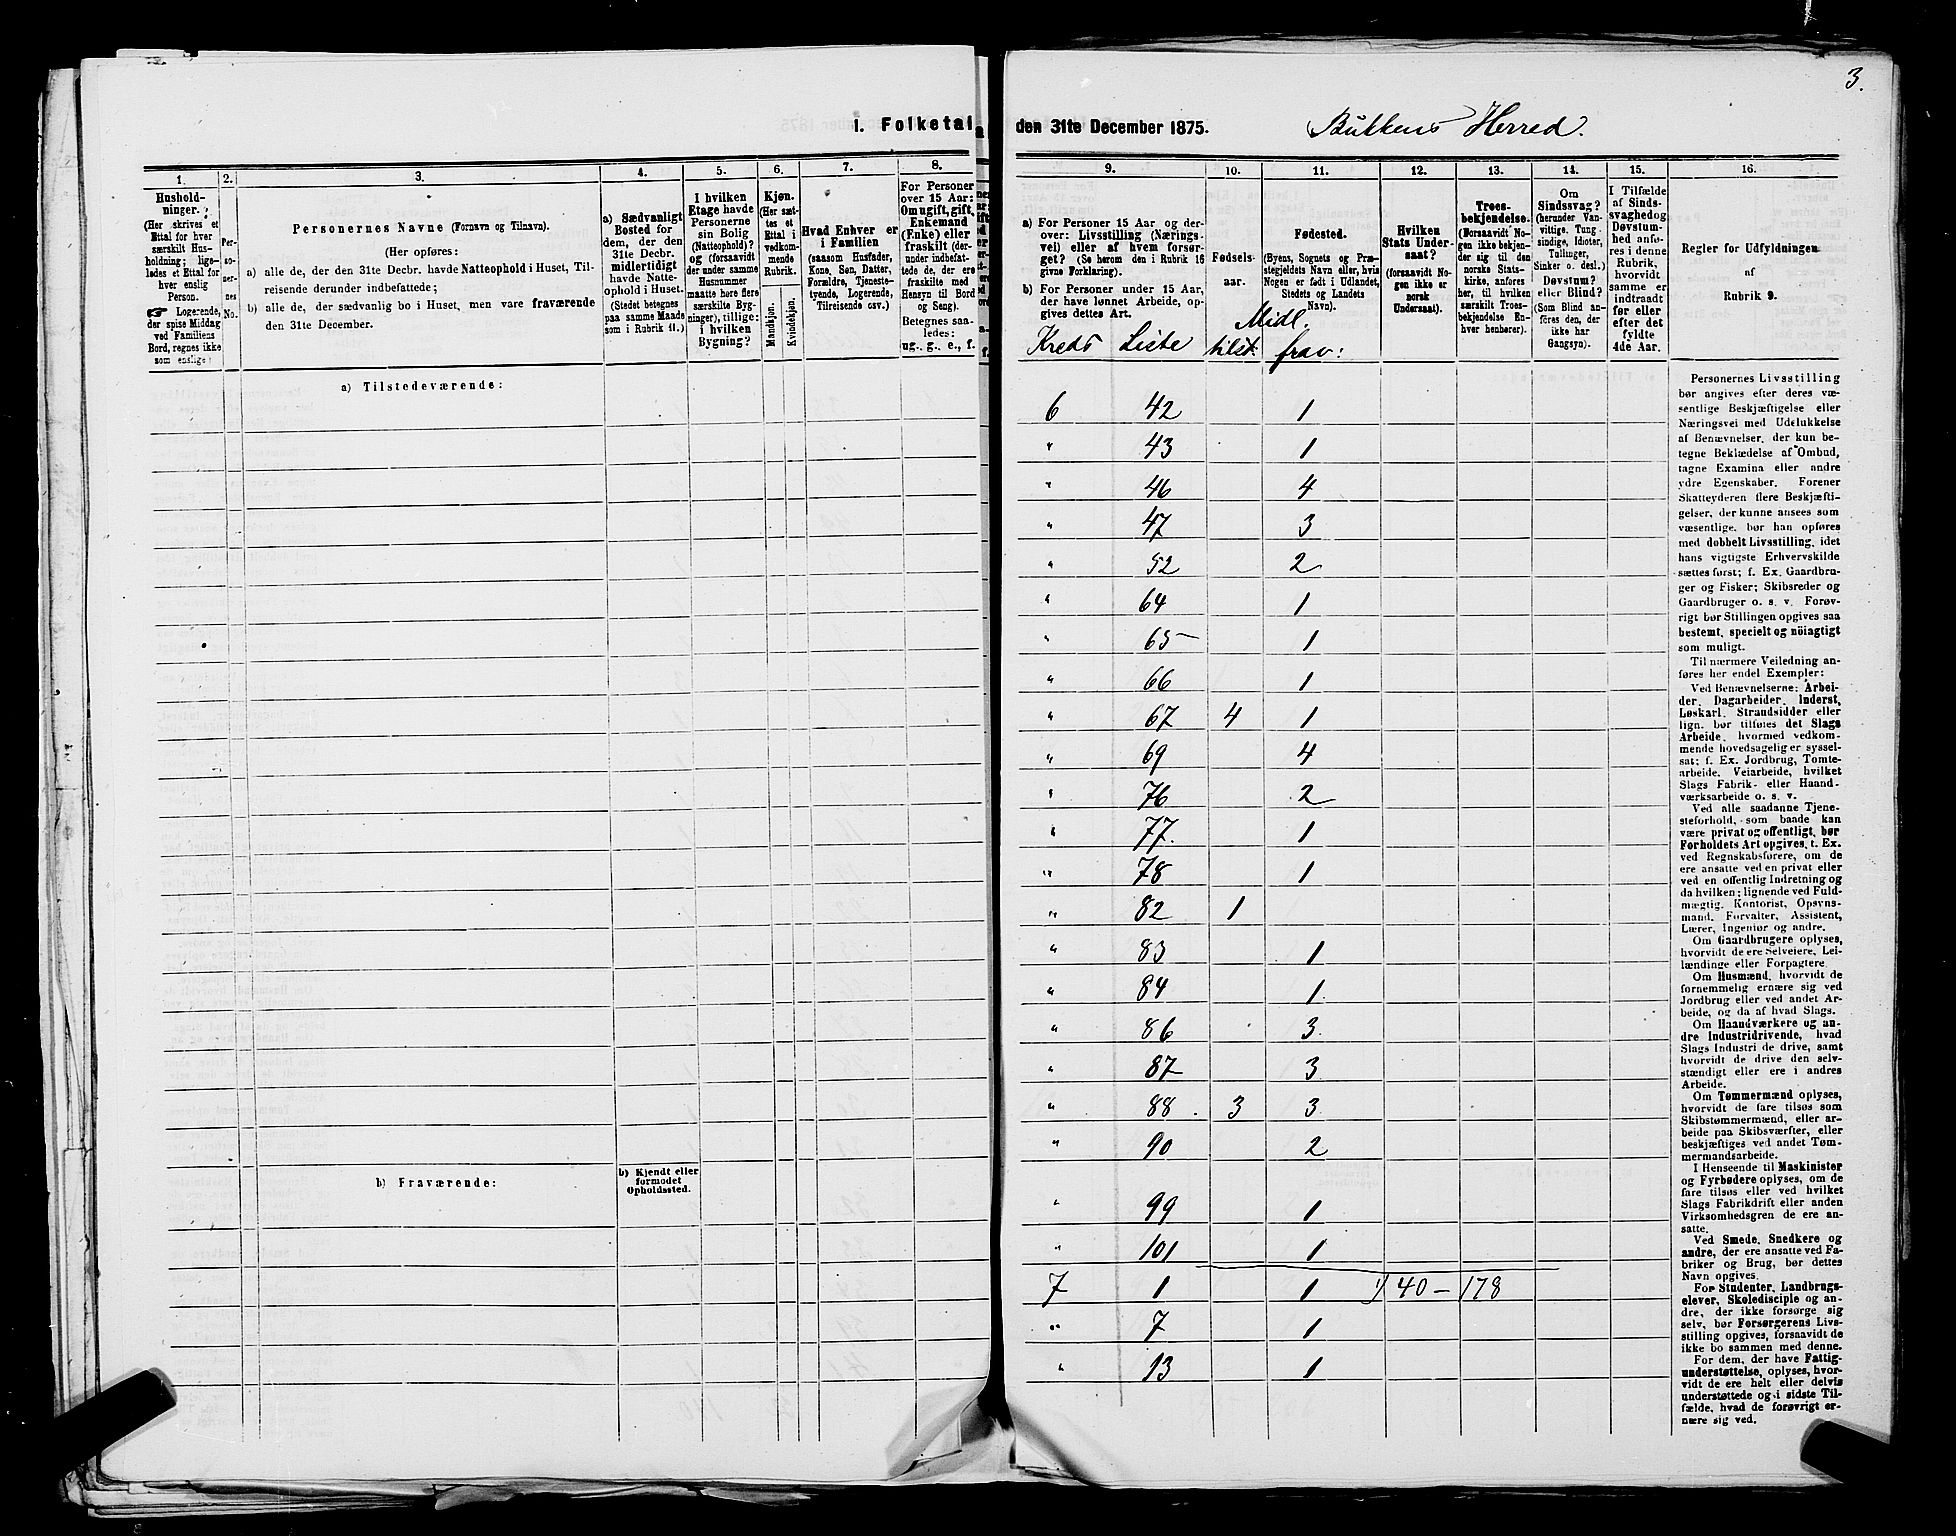 3.
1. Folketal
den 31te December 1875.
Bukkens Herred.
1.
Hushold-
ninger.
(Her skrives et
Ettal for hver
særskilt Hus-
holdning; lige-
ledes et Ettal for
hver enslig
Person.
☞ Logerende,
der spise Middag
ved Familiens
Bord, regnes ikke
som enslige)
2.
Per-
so-
ner-
nes
No.
3.
Personernes Navne (Fornavn og Tilnavn).
(Her opføres:
a) alle de, der den 31te Decbr. havde Natteophold i Huset, Til-
reisende derunder indbefattede;
b) alle de, der sædvanlig bo i Huset, men vare fraværende
den 31te December.
4.
a) Sædvanligt
Bosted for
dem, der den
31te Decbr.
midlertidigt
havde Natte-
ophold i Huset.
(Stedet betegnes
paa samme Maade
som i Rubrik 11.)
5.
I hvilken
Etage havde
Personerne
sin Bolig
(Natteophold)?
og (forsaavidt
der under samme
Husnummer
maatte høre flere
særskilte Byg-
ninger), tillige:
i hvilken
Bygning?
6.
Kjøn.
(Her sæt-
tes et
Ettal i
vedkom-
mende
Rubrik.
Mandkjøn.
Kvindekjøn.
7.
Hvad Enhver er
i Familien
(saasom Husfader,
Kone, Søn, Datter,
Forældre, Tjeneste-
tyende, Logerende,
Tilreisende osv.)
8.
For Personer
over 15 Aar:
Om ugift, gift,
Enkemand
(Enke) eller
fraskilt (der-
under indbefat-
tede de, der ere
fraskilte med
Hensyn til Bord
og Seng).
Betegnes saa-
ledes:
ug., g., e., f.
9.
a) For Personer 15 Aar og der-
over: Livsstilling (Nærings-
vei) eller af hvem forsør-
get? (Se herom den i Rubrik 16
givne Forklaring.)
b) For Personer under 15 Aar,
der have lønnet Arbeide, op-
gives dettes Art.
10.
Fødsels-
aar.
11.
Fødested.
(Byens, Sognets og Præ-
stegjeldets Navn eller, hvis
Nogen er født i Udlandet,
Stedets og Landets
Navn).
12.
Hvilken
Stats Under-
saat?
(forsaavidt No-
gen ikke er
norsk
Undersaat).
13.
Troes-
bekjendelse.
(Forsaavidt No-
gen ikke bekjen-
der sig til den
norske Stats-
kirke, anføres
her, til hvilken
særskilt Troes-
bekjendelse En-
hver henhører).
14.
Om
Sindssvag?
(herunder Van-
vittige, Tung-
sindige, Idioter,
Tullinger,
Sinker o. desl.)
Døvstum?
eller Blind?
(Som Blind an-
føres den, der
ikke har
Gangsyn).
15.
I Tilfælde
af Sinds-
svaghed og
Døvstum-
hed anfø-
res i denne
Rubrik,
hvorvidt
samme er
indtraadt
før eller
efter det
fyldte
4de Aar.
16.
Regler for Udfyldningen
af
Rubrik 9.
Midl.
Kreds Liste tilst: frav:
a) Tilstedeværende:
6 42 1
" 43 1
" 46 4
" 47 3
" 52 2
" 64 1
" 65 1
" 66 1
" 67 4 1
" 69 4
" 76 2
" 77. 1
" 78 1
" 82 1
" 83 1
" 84 1
" 86 3
" 87 3
" 88 3 3
" 90 2
b) Fraværende:
b) Kjendt eller
formodet
Opholdssted.
" 99 1
" 101 1
7 1 1 40 – 178
" 7 1
" 13 1
Personernes Livsstilling
bør angives efter deres væ-
sentlige Beskjæftigelse eller
Næringsvei med Udelukkelse
af Benævnelser, der kun be-
tegne Beklædelse af Ombud,
tagne Examina eller andre
ydre Egenskaber. Forener
Skatteyderen flere Beskjæfti-
gelser, der kunne ansees som
væsentlige, bør han opføres
med dobbelt Livsstilling, idet
hans vigtigste Erhvervskilde
sættes først; f. Ex. Gaardbru-
ger og Fisker; Skibsreder og
Gaardbruger o. s. v. Forøv-
rigt bør Stillingen opgives saa
bestemt, specielt og nöiagtigt
som muligt.
Til nærmere Veiledning an-
føres her endel Exempler:
Ved Benævnelserne: Arbei-
der, Dagarbeider, Inderst,
Løskarl, Strandsidder eller
lign. bør tilføies det Slags
Arbeide, hvormed vedkom-
mende hovedsagelig er syssel-
sat; f. Ex. Jordbrug, Tomte-
arbeide, Veiarbeide, hvilket
Slags Fabrik- eller Haand-
værksarbeide o. s. v.
Ved alle saadanne Tjene-
steforhold, som baade kan
være privat og offentligt, bør
Forholdets Art opgives, t. Ex.
ved Regnskabsførere, om de
ere ansatte ved en privat eller
ved en offentlig Indretning og
da hvilken; lignende ved Fuld-
mægtig, Kontorist, Opsyns-
mand, Forvalter, Assistent,
Lærer, Ingeniør og andre.
Om Gaardbrugere oplyses,
hvorvidt de ere Selveiere, Lei-
lændinge eller Forpagtere.
Om Husmænd, hvorvidt de
fornemmelig ernære sig ved
Jordbrug eller ved andet Ar-
beide, og da af hvad Slags.
Om Haandværkere og an-
dre Industridrivende, hvad
Slags Industri de drive, samt
hvorvidt de drive den selv-
stændigt eller ere i andres
Arbeide.
Om Tømmermænd oplyses,
hvorvidt de fare tilsøs som
Skibstømmermænd, eller ar-
beide paa Skibsværfter, eller
beskjæftiges ved andet Tøm-
mermandsarbeide.
I Henseende til Maskinister
og Fyrbødere oplyses, om de
fare tilsøs eller ved hvilket
Slags Fabrikdrift eller anden
Virksomhedsgren de ere an-
satte.
Ved Smede, Snedkere og
andre, der ere ansatte ved Fa-
briker og Brug, bør dettes
Navn opgives.
For Studenter, Landbrugs-
elever, Skoledisciple og an-
dre, der ikke forsørge sig
selv, bør Forsørgerens Livs-
stilling opgives, forsaavidt de
ikke bo sammen med denne.
For dem, der have Fattig-
understøttelse, oplyses, hvor-
vidt de ere helt eller delvis
understøttede og i sidste Til-
fælde, hvad de forøvrigt er-
nære sig ved.